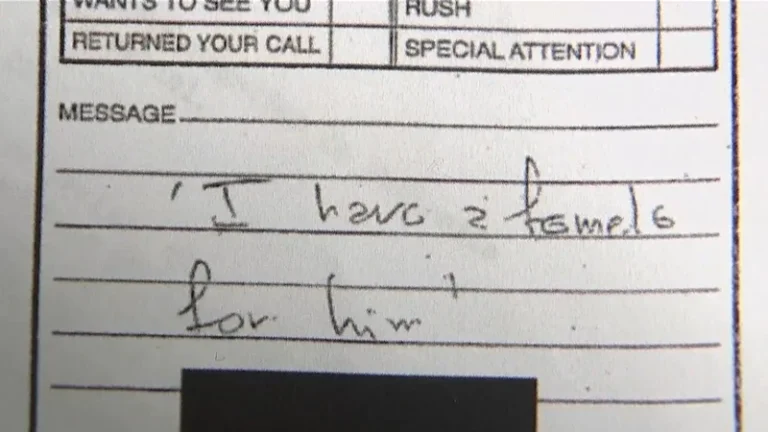 WANTS TO SEE YOU RUSH
RETURNED YOUR CALL SPECIAL ATTENTION
MESSAGE
'I have a female
for him'